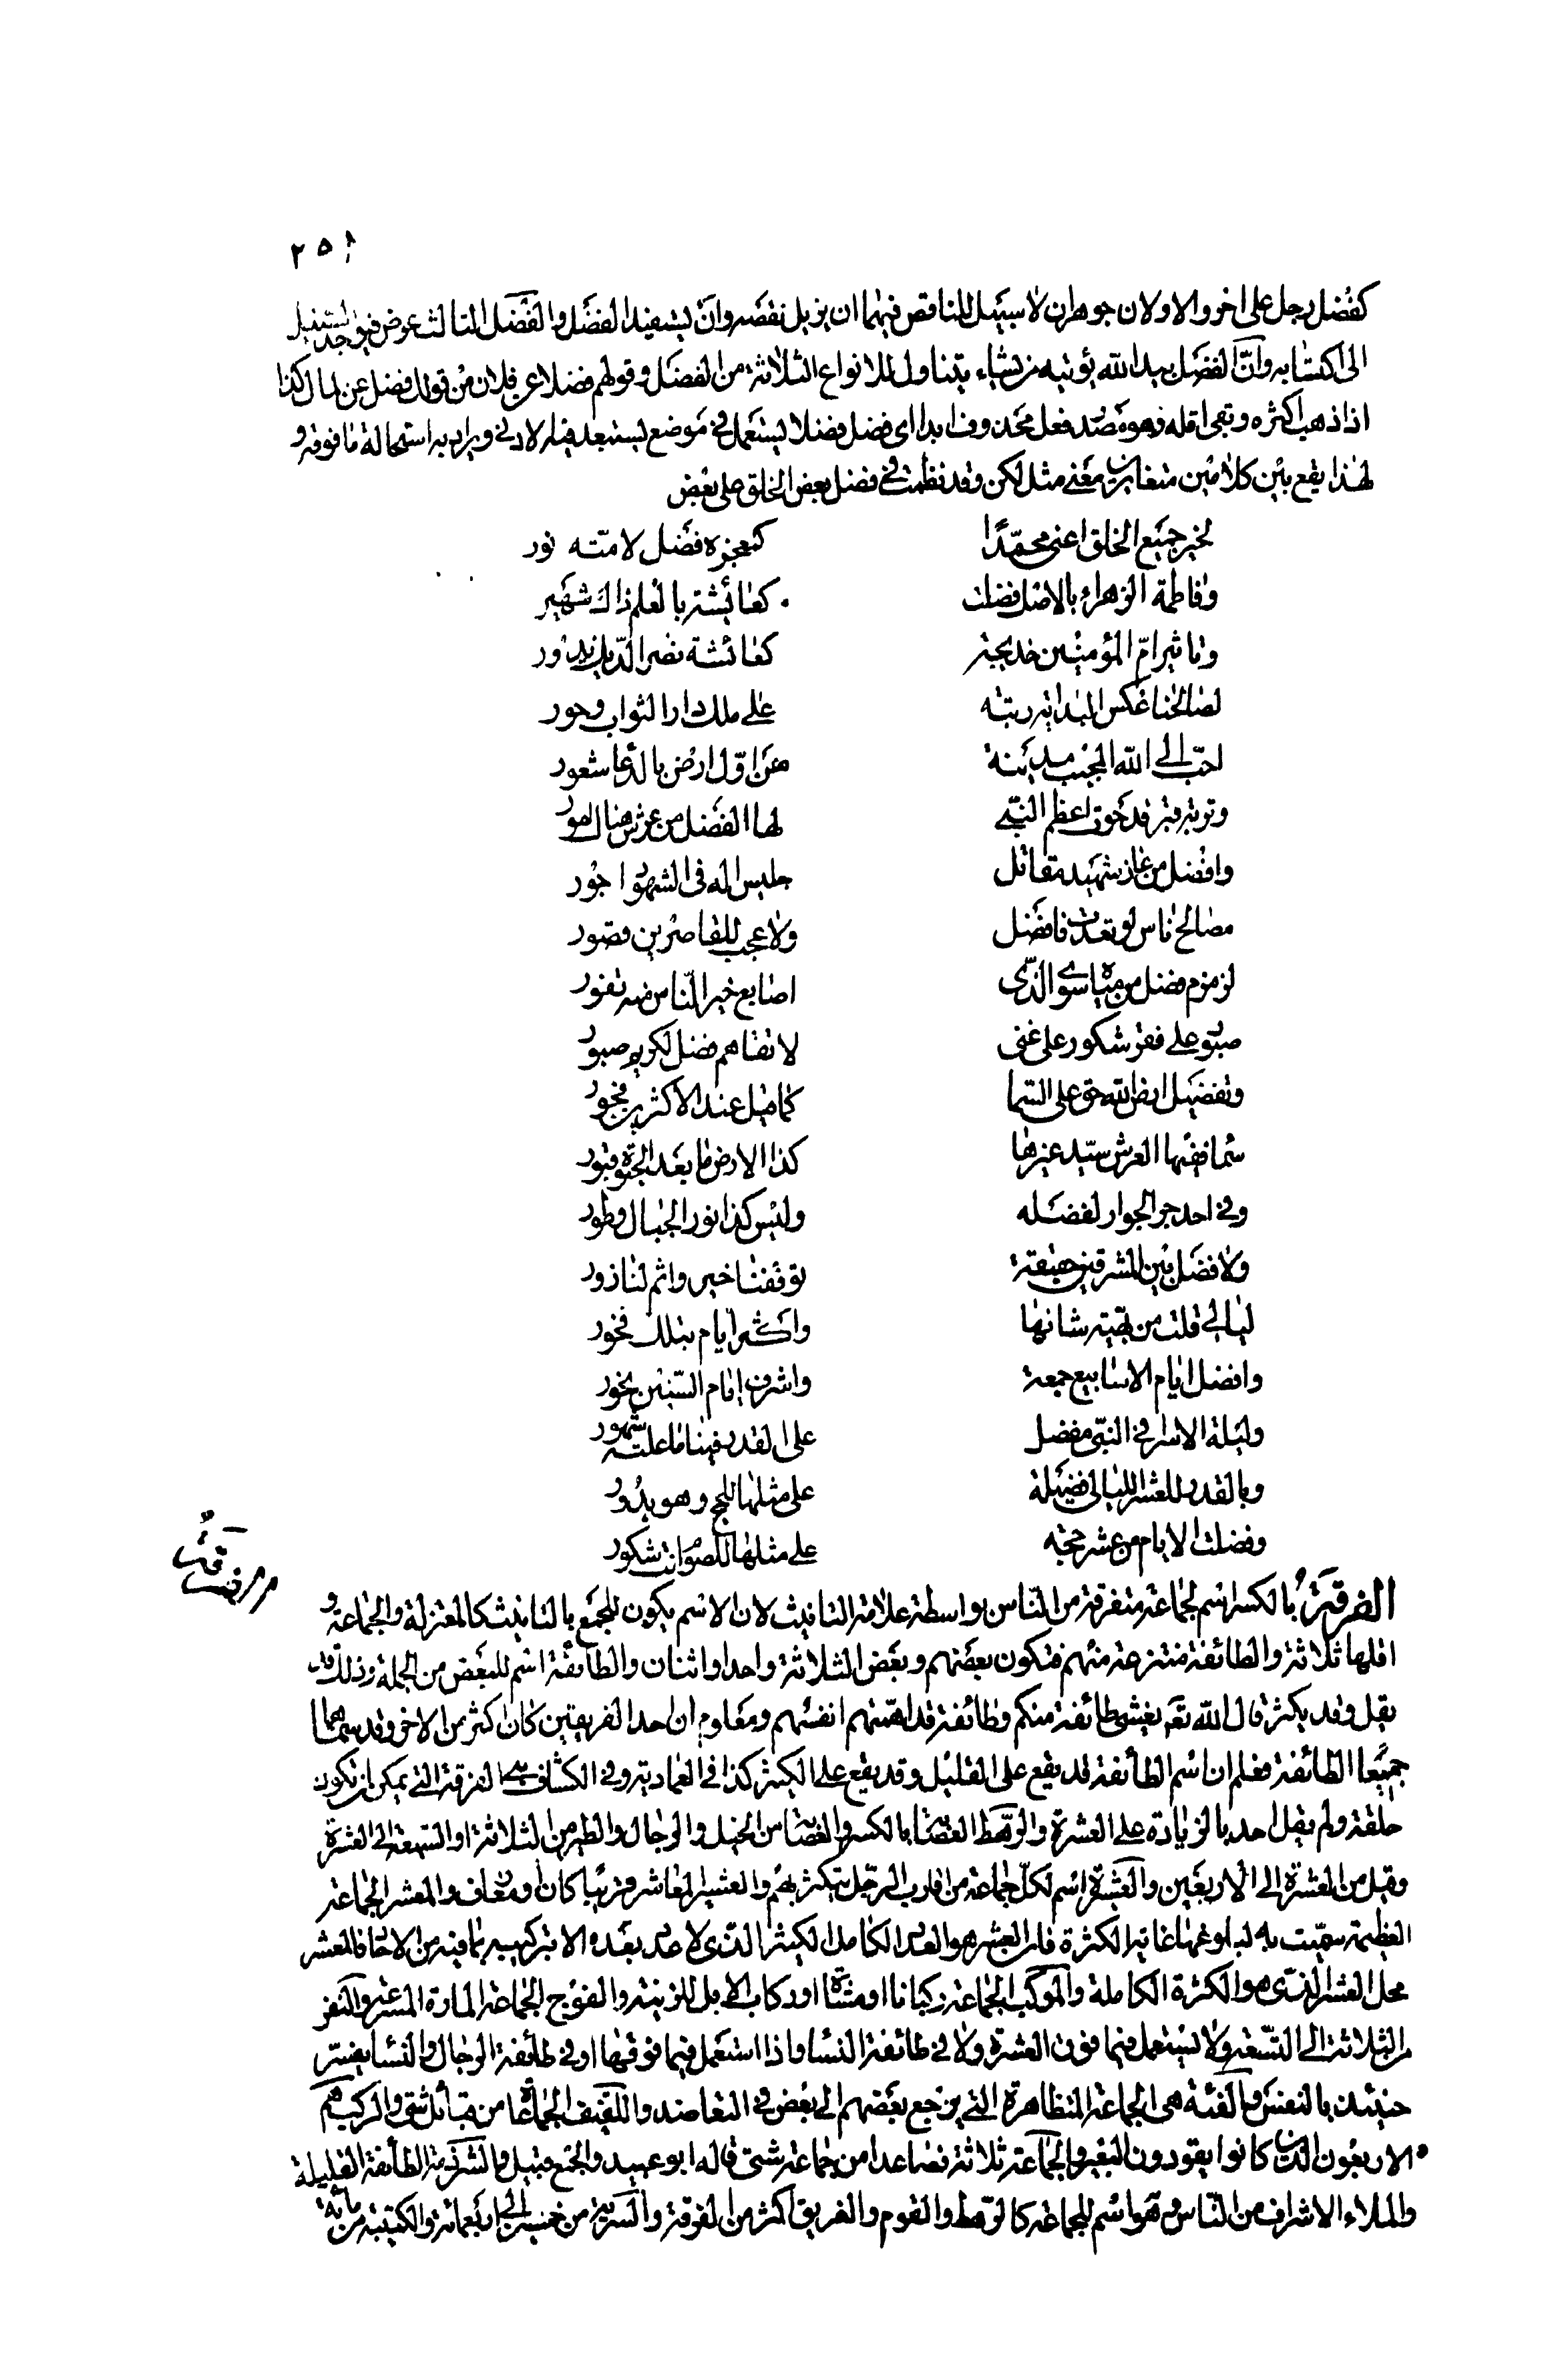 ٢٥١
كفضل رجل على اخر والاولان جوهران لا سبيل للناقص فيهما ان يزيل نقصه وان يستفيد الفضل والفضل الثالث عرض فيوجد السبيل
الى اكتسابه وان الفضل بيد الله يؤتيه من يشاء يتناول للانواع الثلاثة من الفضل وقولهم فضلا عن فلان من قولك فضل عن المال كذا
اذا ذهب اكثره وبقى اقله وهو مصدر فعل محذوف ابدا اى فضل فضلا يستعمل فى موضع يستبعد فيه الادنى ويراد به استحالة ما فوقه و
لهذا يقع بين كلامين متغايرين معنى مثل لكن وقد نظمت فى فضل بعض الخلق على بعض
لخير جميع الخلق اعنى محمدًا كمعجزه فضل لامته نور
وفاطمة الزهراء بالاصل فضلت كعائشة بالعلم ذاك شهير
وتاثير ام المؤمنين خديجة كعائشة نصر الدين
لصالحنا عكس البداية رتبة على ملك دار الثواب وحور
احب الى الله المجيب مدينة اول ارض بالدعا شعور
وتربة قبر قد حوى اعظم النبى لها الفضل من عرش هناك امور
وافضل من غاز شهيد مقاتل جليس اله فى الشهود اجور
مصالح ناس لو تعدت فافضل ولا عجب للقاصرين قصور
لزمزم فضل من مياه سوى الذى اصابع خير الناس منه تفور
صبور على فقر شكور على غنى لاتقاهم فضل لكريم صبور
وتفضيل ارض الله حق على السما كما قيل عند الاكثرين فخور
سما فيها العرش سيد غيرها كذا الارض ما بعد الجنة قبور
وفى احد حق الجوار لفضله وليس كذا نور الجبال وطور
ولا فضل بين المشرقين حقيقة توقفنا خير واثم لنا زور
ليالى قلت من بقية شانها واكثر ايام بتلك فخور
وافضل ايام الاسابيع جمعة واشرف ايام السنين نحور
وليلة الاسرا فى النبى مفضل على القدر فينا ما علته شهور
وبالقدر للعشر الليالى فضيلة على مثلها للحج وهو بدور
وفضلت الايام من عشر حجة على مثلها للصوم انت شكور
الفرقة بالكسر اسم لجماعة متفرقة من الناس بواسطة علامة التانيث لان الاسم يكون للجمع بالتانيث كالمعتزلة والجماعة و
اقلها ثلاثة والطائفة منتزعة منهم فتكون بعضهم وبعض الثلاثة واحد او اثنان والطائفة اسم للبعض من الجملة وذلك قد
يقل وقد يكثر قال الله تع يغشى طائفة منكم وطائفة قد اهمتهم انفسهم ومعلوم ان احد الفريقين كان اكثر من الاخر وقد سماهما
جميعا الطائفة فعلم ان اسم الطائفة قد يقع على القليل وقد يقع على الكثير كذا فى العمادية وفى الكشاف هى الفرقة التى يمكن ان تكون
حلقة ولم يقل احد بالزيادة على العشرة والرهط العصابة بالكسر والعصابة من الخيل والرجال والطير من الثلاثة او السبعة الى العشرة
وقيل من العشرة الى الاربعين والعشيرة اسم لكل جماعة من اقارب الرجل يتكثر بهم والعشير المعاشر قريبا كان او معارف والمعشر الجماعة
العظيمة سميت به لبلوغها غاية الكثرة فان العشر هو العدد الكامل الكثير الذى لا عدد بعده الا بتركيبه بما فيه من الاحاد فالمعشر
محل العشر الذى هو الكثرة الكاملة والموكب الجماعة ركبانا او مشاة او ركاب الابل للزينة والفوج الجماعة المارة المسرعة والنفر
من الثلاثة الى التسعة ولا يستعمل فيما فوق العشرة ولا فى طائفة النسا واذا استعمل فيما فوقها او فى طائفة الرجال والنسا يفسر
حينئذ بالنفس والفئة هى الجماعة المتظاهرة التى يرجع بعضهم الى بعض فى التعاضد واللفيف الجماعة من قبائل شتى والركب هم
الاربعون الذين كانوا يقودون البعير والجماعة ثلاثة فصاعدا من جماعة شتى قاله ابو عبيد والجمع قبيل والشرذمة الطائفة القليلة
والملاء الاشراف من الناس وهو اسم للجماعة كالرهط والقوم والفريق اكثر من الفرقة والسرية من خمسة الى اربعمائة والكتيبة من مائة